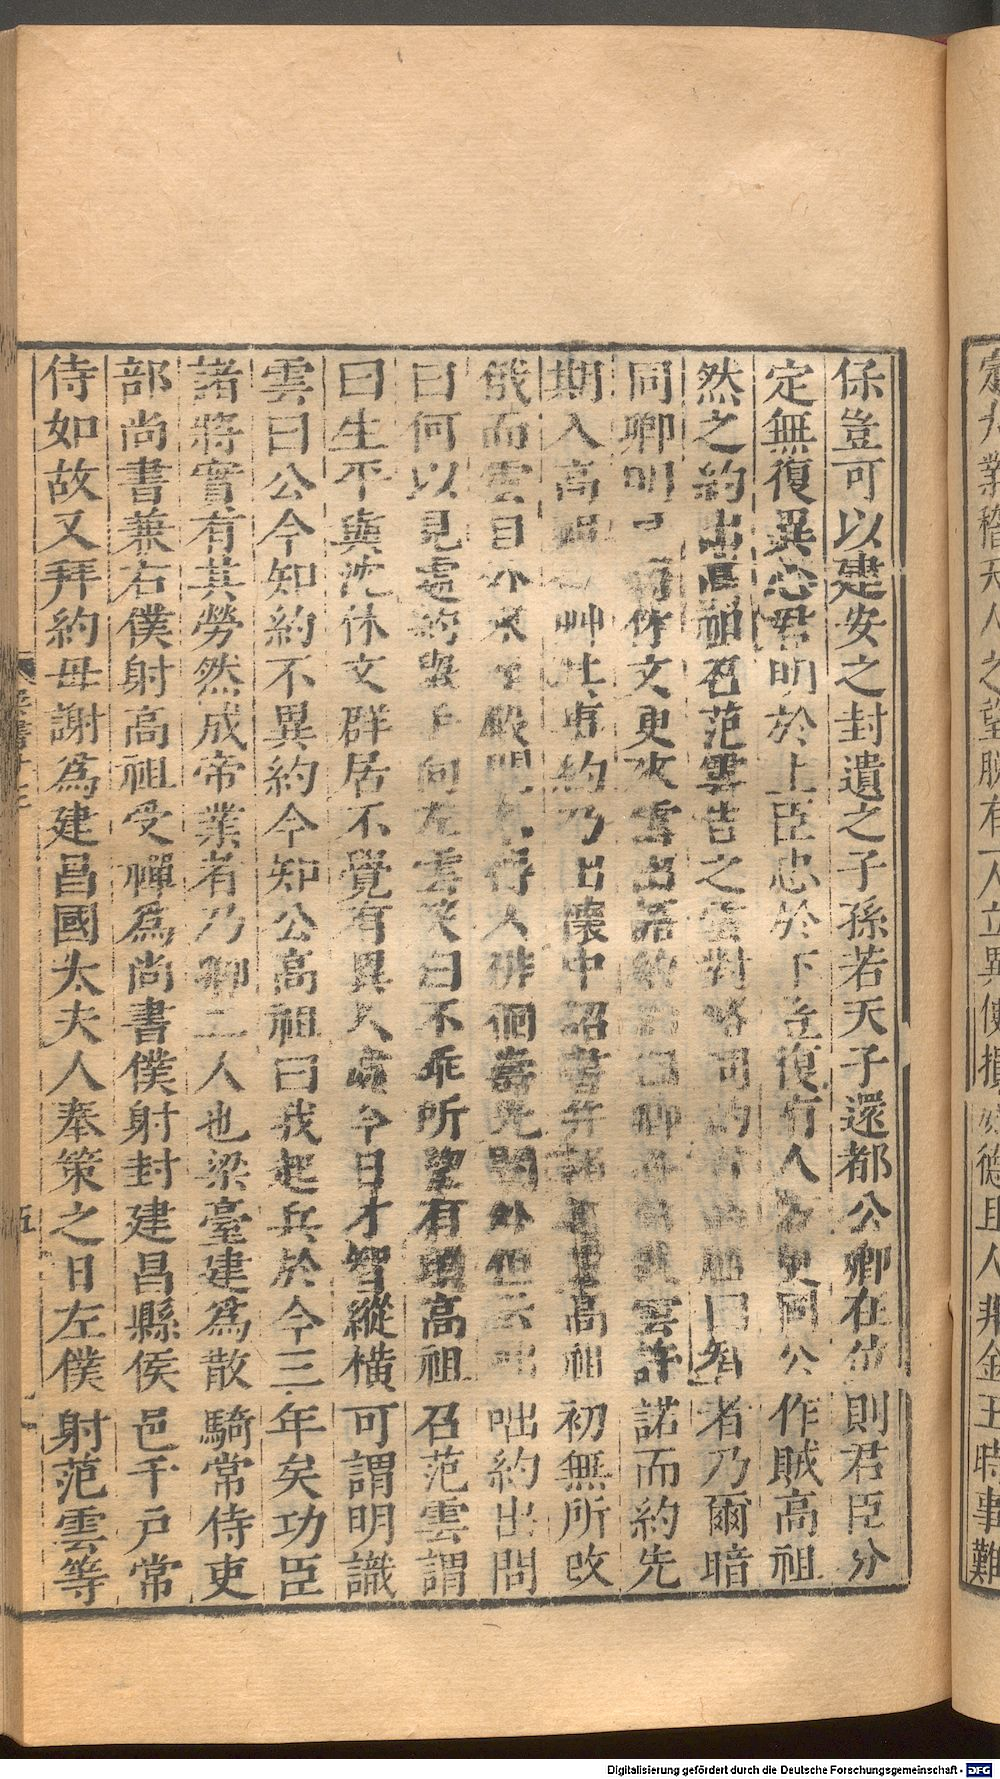 保豈可以建安之封遺之子孫若天子還都公卿在位則君臣分
定無復異心君明於上臣忠於下豈復有人方更同公作賊高祖
然之約出高祖召范雲告之雲對略同約旨高祖曰智者乃爾暗
同卿明早將休文更來雲出語約約曰卿必待我雲許諾而約先
期入高祖命草其事約乃出懷中詔書并諸選置高祖初無所改
俄而雲自外來至殿門不得入徘徊壽光閣外但云咄咄約出問
曰何以見處約舉手向左雲笑曰不乖所望有頃高祖召范雲謂
曰生平與沈休文群居不覺有異人處今日才智縱橫可謂明識
雲曰公今知約不異約今知公高祖曰我起兵於今三年矣功臣
諸將實有其勞然成帝業者乃卿二人也梁臺建爲散騎常侍吏
部尚書兼右僕射高祖受禪爲尚書僕射封建昌縣侯邑千戶常
侍如故又拜約母謝爲建昌國太夫人奉策之日左僕射范雲等
梁書十三
五
Digitalisierung gefördert durch die Deutsche Forschungsgemeinschaft - DFG